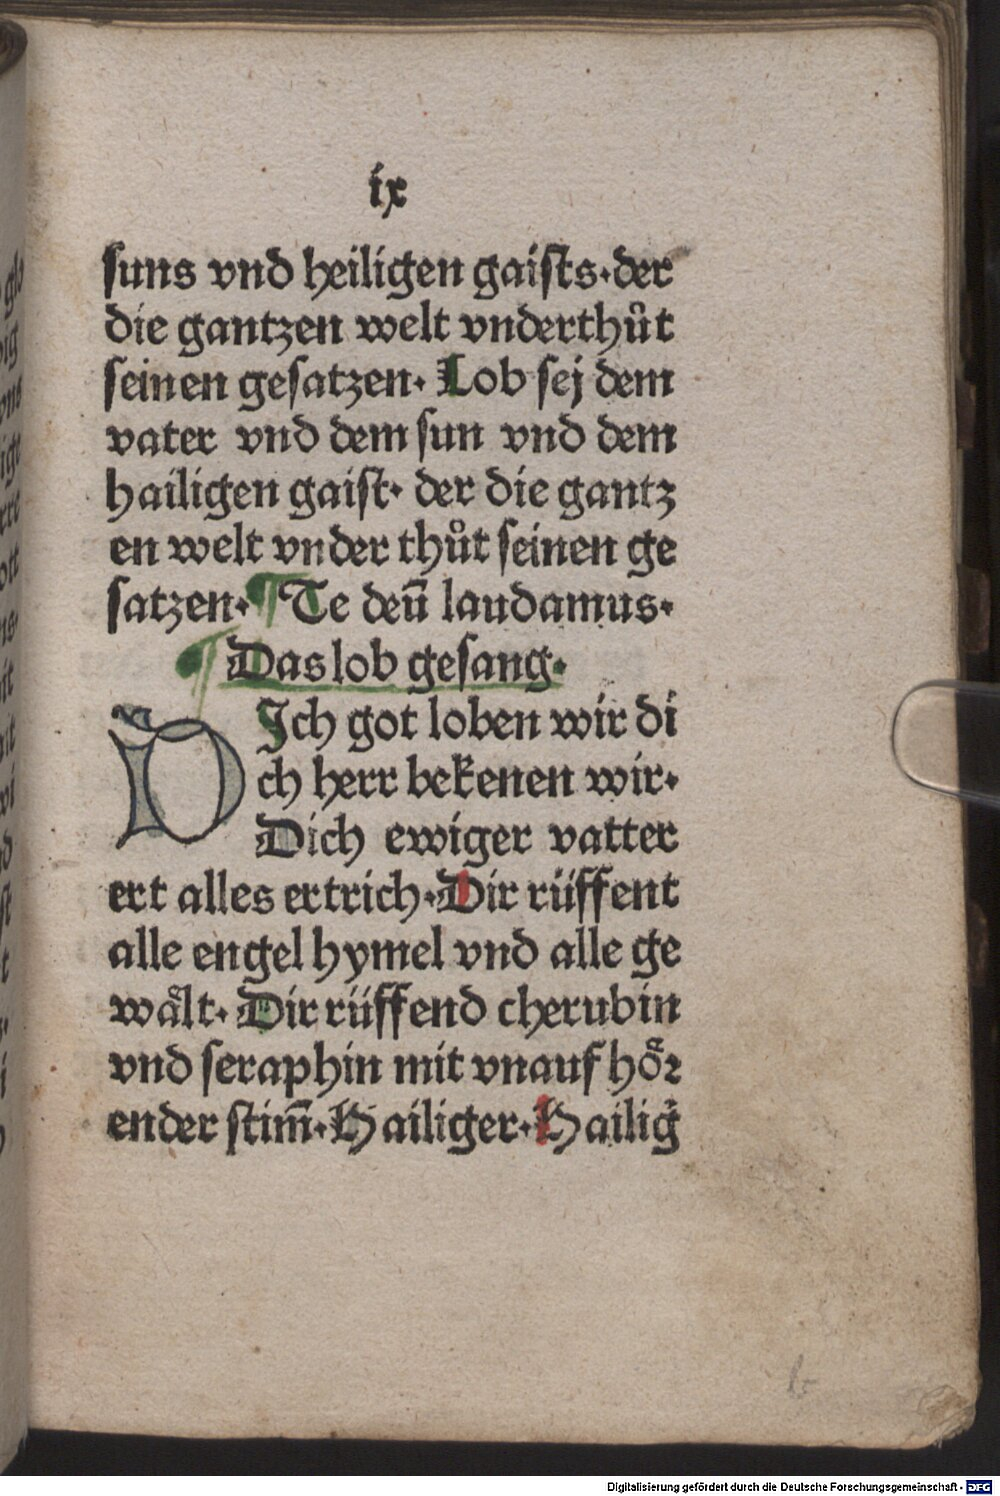 ix
suns vnd heiligen gaists·der
die gantzen welt vnderthůt
seinen gesatzen· Lob sej dem
vater vnd dem sun vnd dem
hailigen gaist· der die gantz
en welt vnder thůt seinen ge
satzen· ¶ Te deū laudamus·
¶ Das lob gesang·
DIch got loben wir di
ch herr bekenen wir·
Dich ewiger vatter
ert alles ertrich·Dir rüffent
alle engel hymel vnd alle ge
wåͤlt· Dir rüffend cherubin
vnd seraphin mit vnauf hoͤꝛ
ender stim̄·Hailiger·Hailig̉
Digitalisierung gefördert durch die Deutsche Forschungsgemeinschaft - DFG